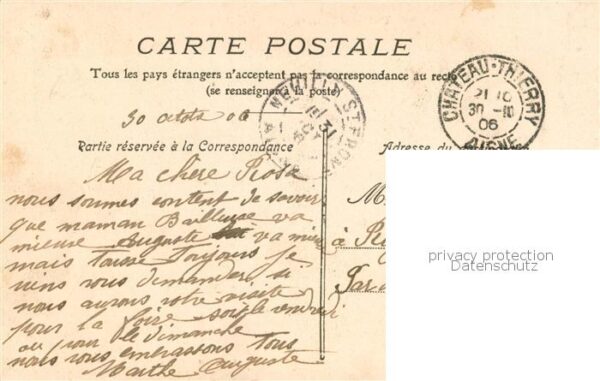 CARTE POSTALE
Tous les pays étrangers n'acceptent pas la correspondance au recto
(se renseigner à la poste)
CHATEAU-THIERRY
30 -10
06
AISNE
NEUILLY ST FRONT
30 06
Partie réservée à la Correspondance
Adresse du
Ma chere Rosa
nous sommes content de savoir
que maman Bailleuse va
mieuse Auguste va mieu
mais tousse toujours je
viens vous demander si
nous aurons votre visite
pour la foire soit le vendredi
ou pour le dimanche
nous vous embrassons tous
Marthe Auguste
M
à
Par
privacy protection
Datenschutz